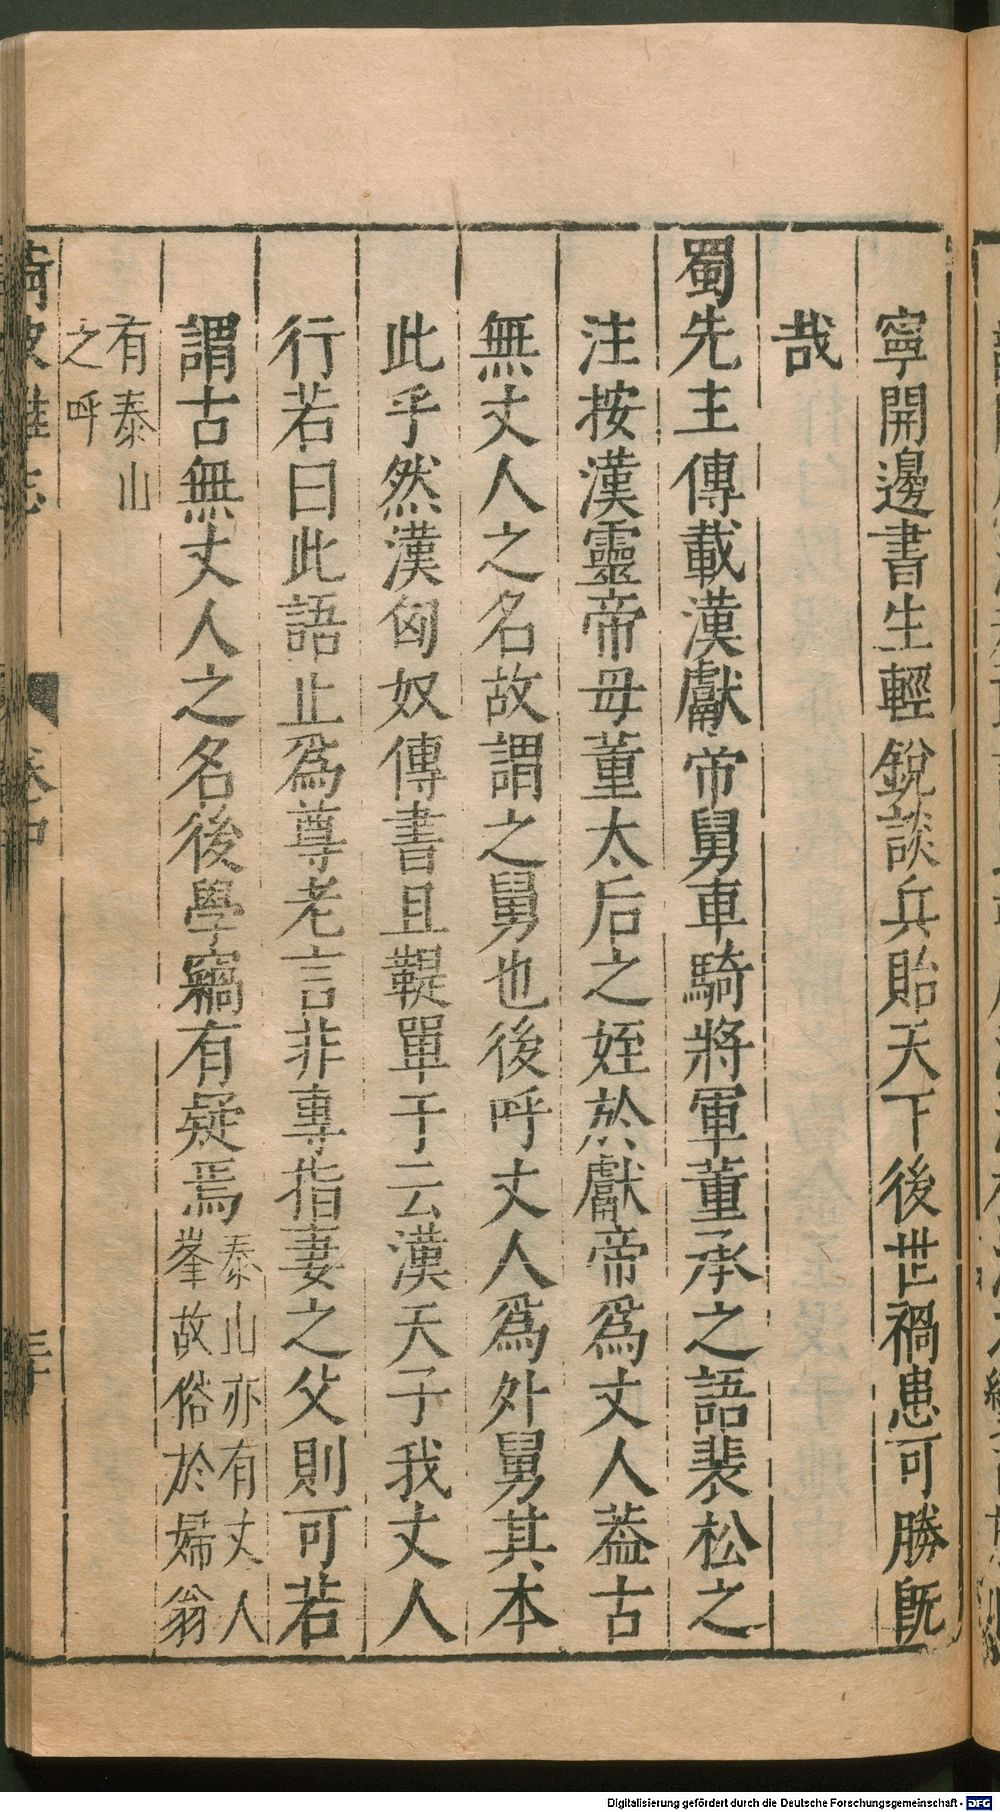 寧開邊書生輕銳談兵貽天下後世禍患可勝旣
哉
蜀先主傳載漢獻帝舅車騎將軍董承之語裴松之
注按漢靈帝母董太后之姪於獻帝爲丈人葢古
無丈人之名故謂之舅也後呼丈人爲外舅其本
此乎然漢匈奴傳書且鞮單于云漢天子我丈人
行若曰此語止爲尊老言非專指妻之父則可若
謂古無丈人之名後學竊有疑焉泰山亦有丈人
峯故俗於婦翁
有泰山
之呼
Digitalisierung gefördert durch die Deutsche Forschungsgemeinschaft - DFG